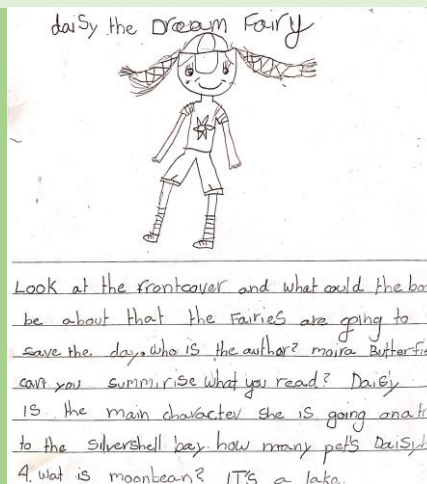 daisy the Dream Fairy
Look at the frontcover and what could the bo
be about that the Fairies are going to
save the day. who is the author? moira Butterfie
can you summirise what you read? Daisy
is the main character she is going on a tr
to the silvershell bay. how many pet's Daisy
4. wat is moonbean? IT'S a lake.